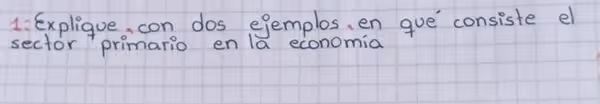 1: Explique, con dos ejemplos, en qué consiste el
sector primario en la economía